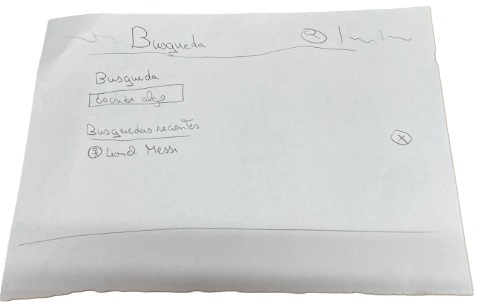 Busqueda
Busqueda
Escribe algo
Busquedas recientes
Lionel Messi